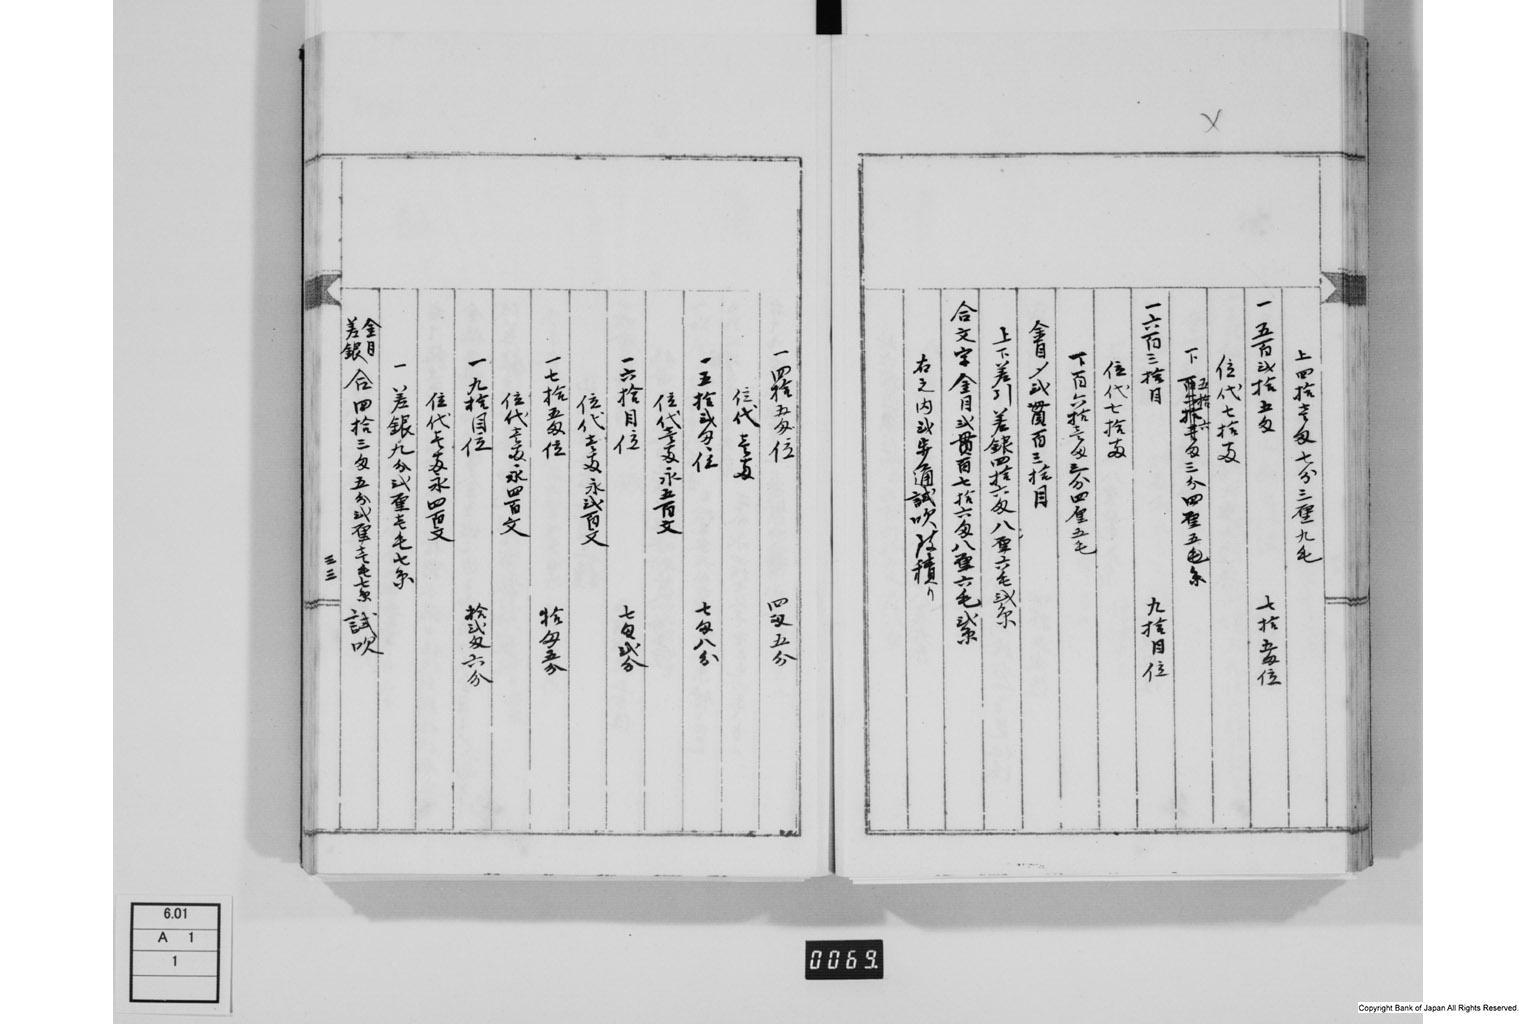 上四拾壱匁七分三厘九毛
一五百弐拾五匁 七拾五匁位
位代七拾両
下
三分四厘五毛
一六百三拾目 九拾目位
位代七拾両
下百六拾壱匁三分四厘五毛
金目〆弐貫百三拾目
上下差引差銀四拾六匁八厘六毛弐糸
合文字金目弐貫百七拾六匁八厘六毛弐糸
右之内弐歩通試吹
一四拾五匁位 四匁五分
位代壱両
一五拾弐匁位 七匁八分
位代壱両永五百文
一六拾目位 七匁弐分
位代壱両永弐百文
一七拾五匁位 拾匁五分
位代壱両永四百文
一九拾目位 拾弐匁六分
位代壱両永四百文
一差銀九分弐厘壱毛七糸
金目
差銀 合四拾三匁五分弐厘壱毛七糸 試吹
三三
6.01
A 1
1
0069
Copyright Bank of Japan All Rights Reserved.